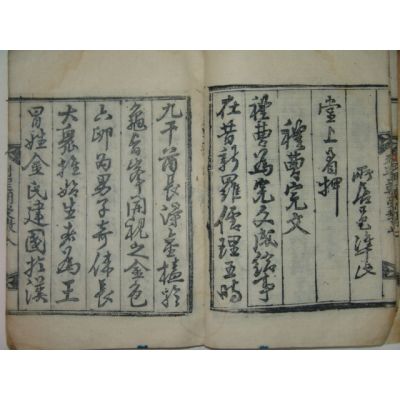 所居邑準此
堂上着押
禮曹完文
禮曹爲完文成給事
在昔新羅儒理王時
九干酋長得金榼於
龜旨峯開視之金色
六卵爲男子奇偉長
大衆推始生者爲王
冒姓金氏建國於漢